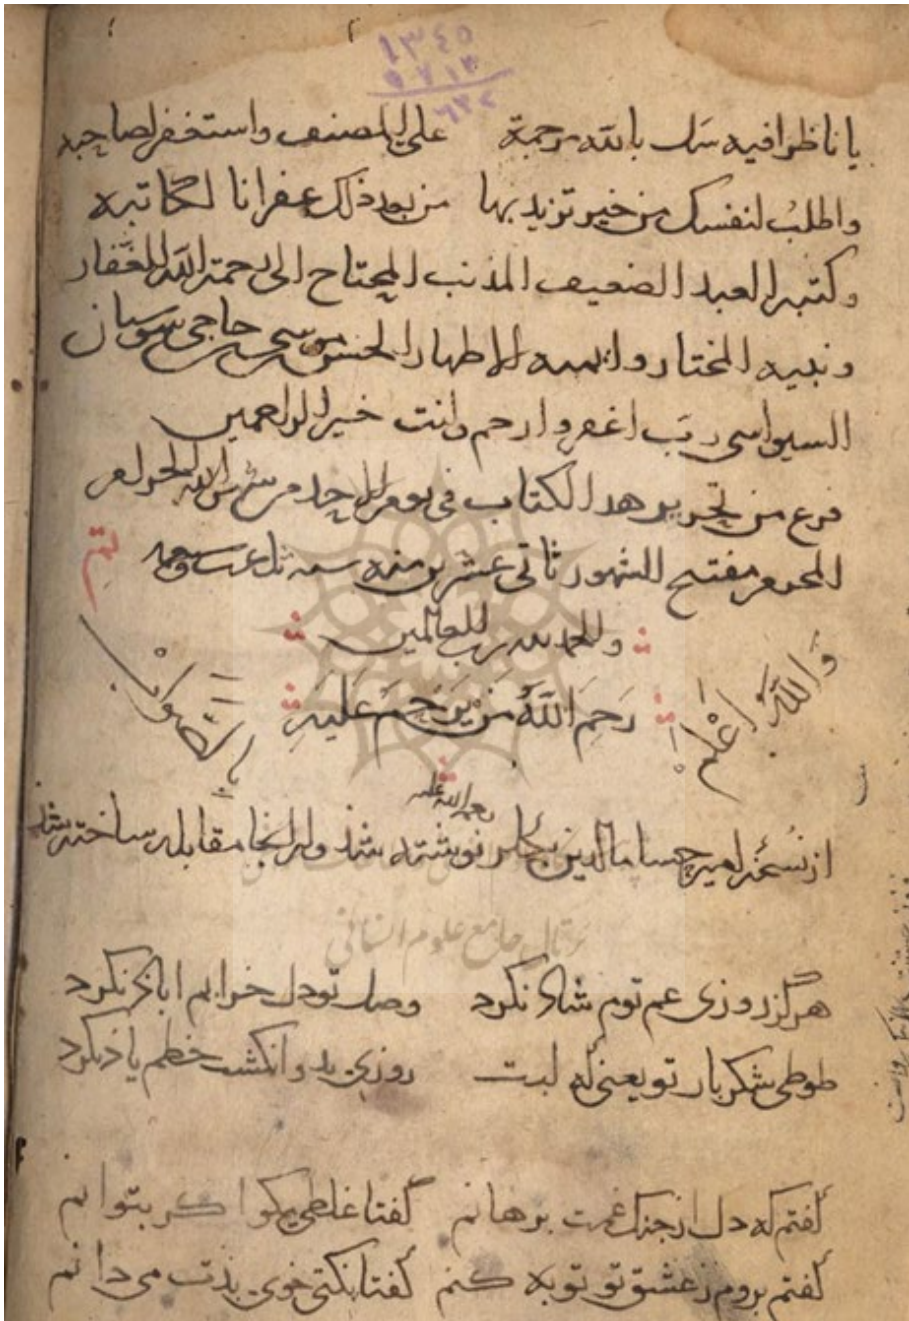 ١٣٤٥
٥٨١٣
يا ناظرا فيه سل بالله مرحمة على المصنف واستغفر لصاحبه
واطلب لنفسك من خير تريد بها من بعد ذلك غفرانا لكاتبه
وكتبه العبد الضعيف المذنب المحتاج الى رحمة الله الغفار
ونبيه المختار وائمته الاطهار الحسن حاجي
السيواسي رب اغفر وارحم وانت خير الراحمين
فرغ من تحرير هذا الكتاب في يوم الاحد من شهر الله
المحرم مفتتح الشهور ثاني عشرين منه سنه
والحمد لله رب العالمين
رَحِمَ اللهُ مَن يَرحَم عَلَيهِ
وَاللهُ اَعْلَمُ
بِالصَّوَابْ
رحمة الله عليه
از نسخهٔ امیر حسام الدین نوشته شد و از انجا مقابله ساخته شد
هرگز روزی غم توم شاد نکرد وصل تو دل خرابم اباد نکرد
طوطی شکربار تو یعنی که لبت روزی بدو انگشت خطم یاد نکرد
گفتم که دل از جنک غمت برهانم گفتا غلطی مکو اکر بتوانم
گفتم بروم ز عشق تو توبه کنم گفتا نکنی خوی بدت می دانم
پرتال جامع علوم انسانی